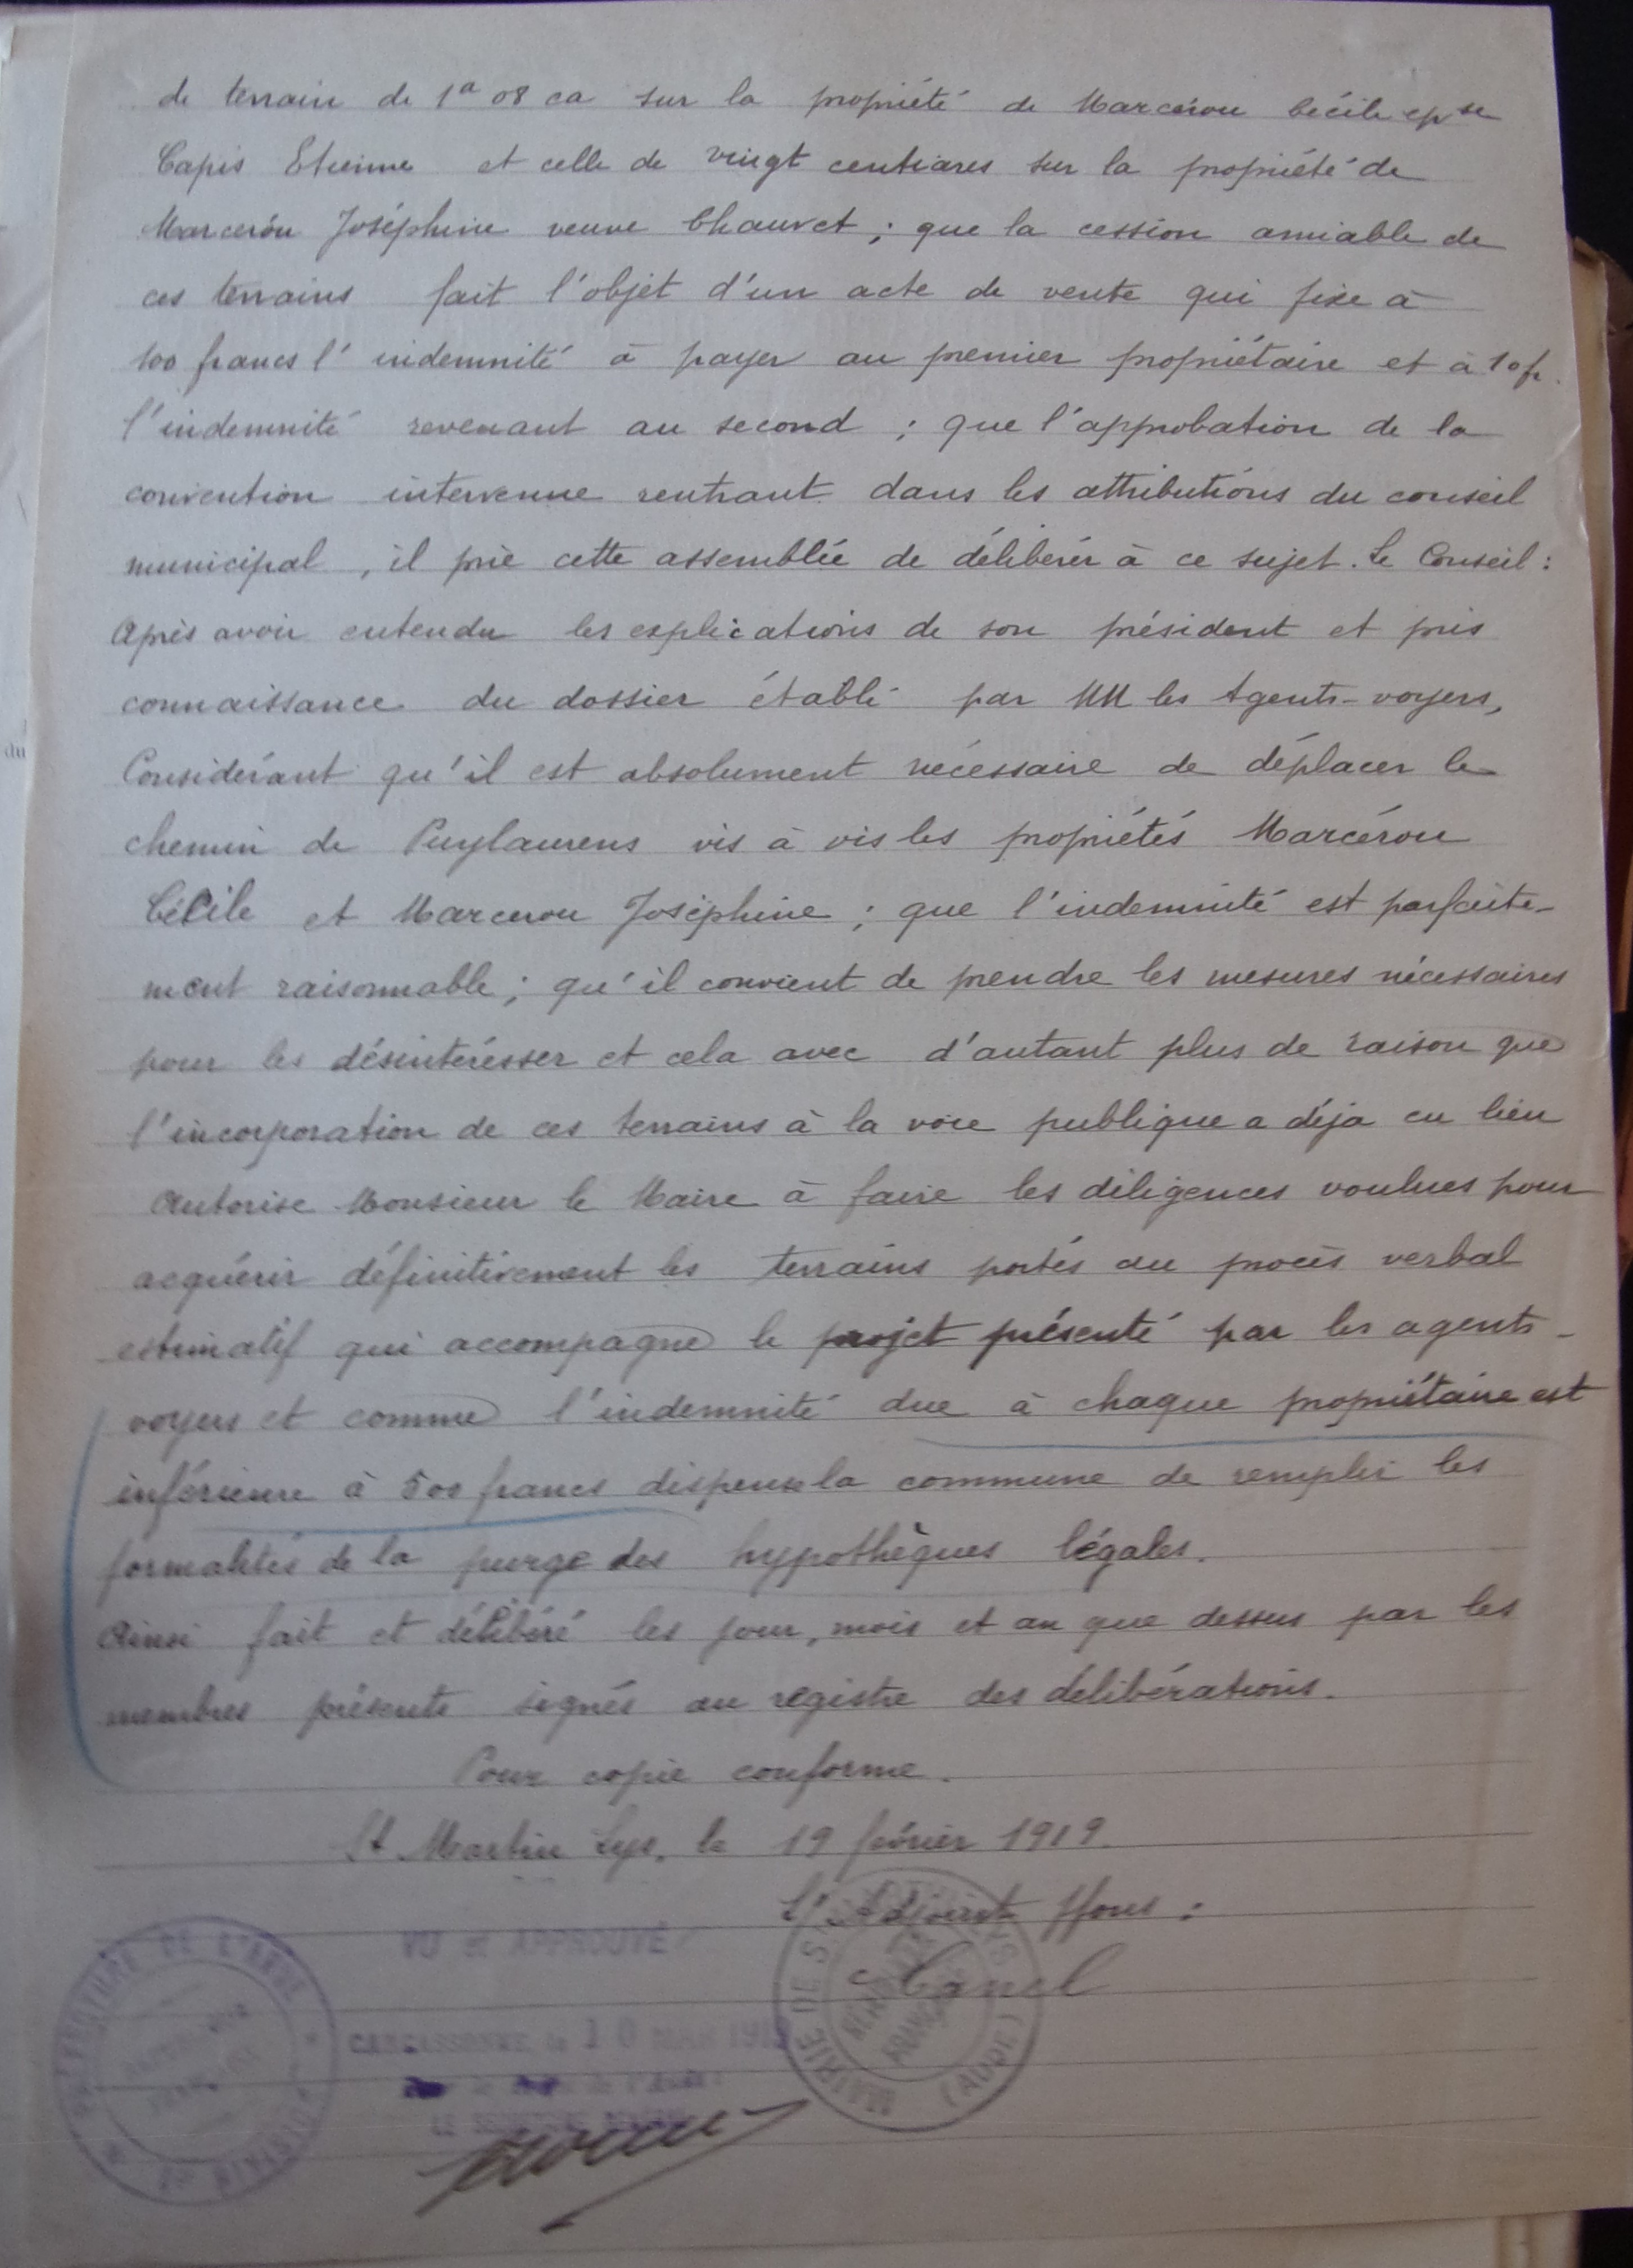 de terrain de 1a 08 ca sur la propriété de Marcérou Cécile epse
Capis Etienne et celle de vingt centiares sur la propriété de
Marcerou Joséphine veuve Chauvet ; que la cession amiable de
ces terrains fait l'objet d'un acte de vente qui fixe à
100 francs l'indemnité à payer au premier propriétaire et à 10f.
l'indemnité revenant au second ; que l'approbation de la
convention intervenue rentrant dans les attributions du conseil
municipal, il prie cette assemblée de délibérer à ce sujet. Le Conseil :
Après avoir entendu les explications de son président et pris
connaissance du dossier établi par MM les Agents-voyers,
Considérant qu'il est absolument nécessaire de déplacer le
chemin de Puylaurens vis à vis les propriétés Marcérou
Cécile et Marcerou Joséphine ; que l'indemnité est parfaite-
ment raisonnable ; qu'il convient de prendre les mesures nécessaires
pour les désintéresser et cela avec d'autant plus de raison que
l'incorporation de ces terrains à la voie publique a déja eu lieu
Autorise Monsieur le Maire à faire les diligences voulues pour
acquérir définitivement les terrains portés au procès verbal
estimatif qui accompagne le projet présenté par les agents-
voyers et comme l'indemnité due à chaque propriétaire est
inférieure à 500 francs dispense la commune de remplir les
formalités de la purge des hypothèques légales.
Ainsi fait et délibéré les jour, mois et an que dessus par les
membres présents signés au registre des délibérations.
Pour copie conforme.
St Martin Lys, le 19 février 1919
L'Adjoint ffons :
Canel
VU et APPROUVÉ
CARCASSONNE, le 10 MAR 1919
PRÉFECTURE DE L'AUDE
MAIRIE DE S
RÉPUBLIQUE FRANÇAISE
(AUDE)
du